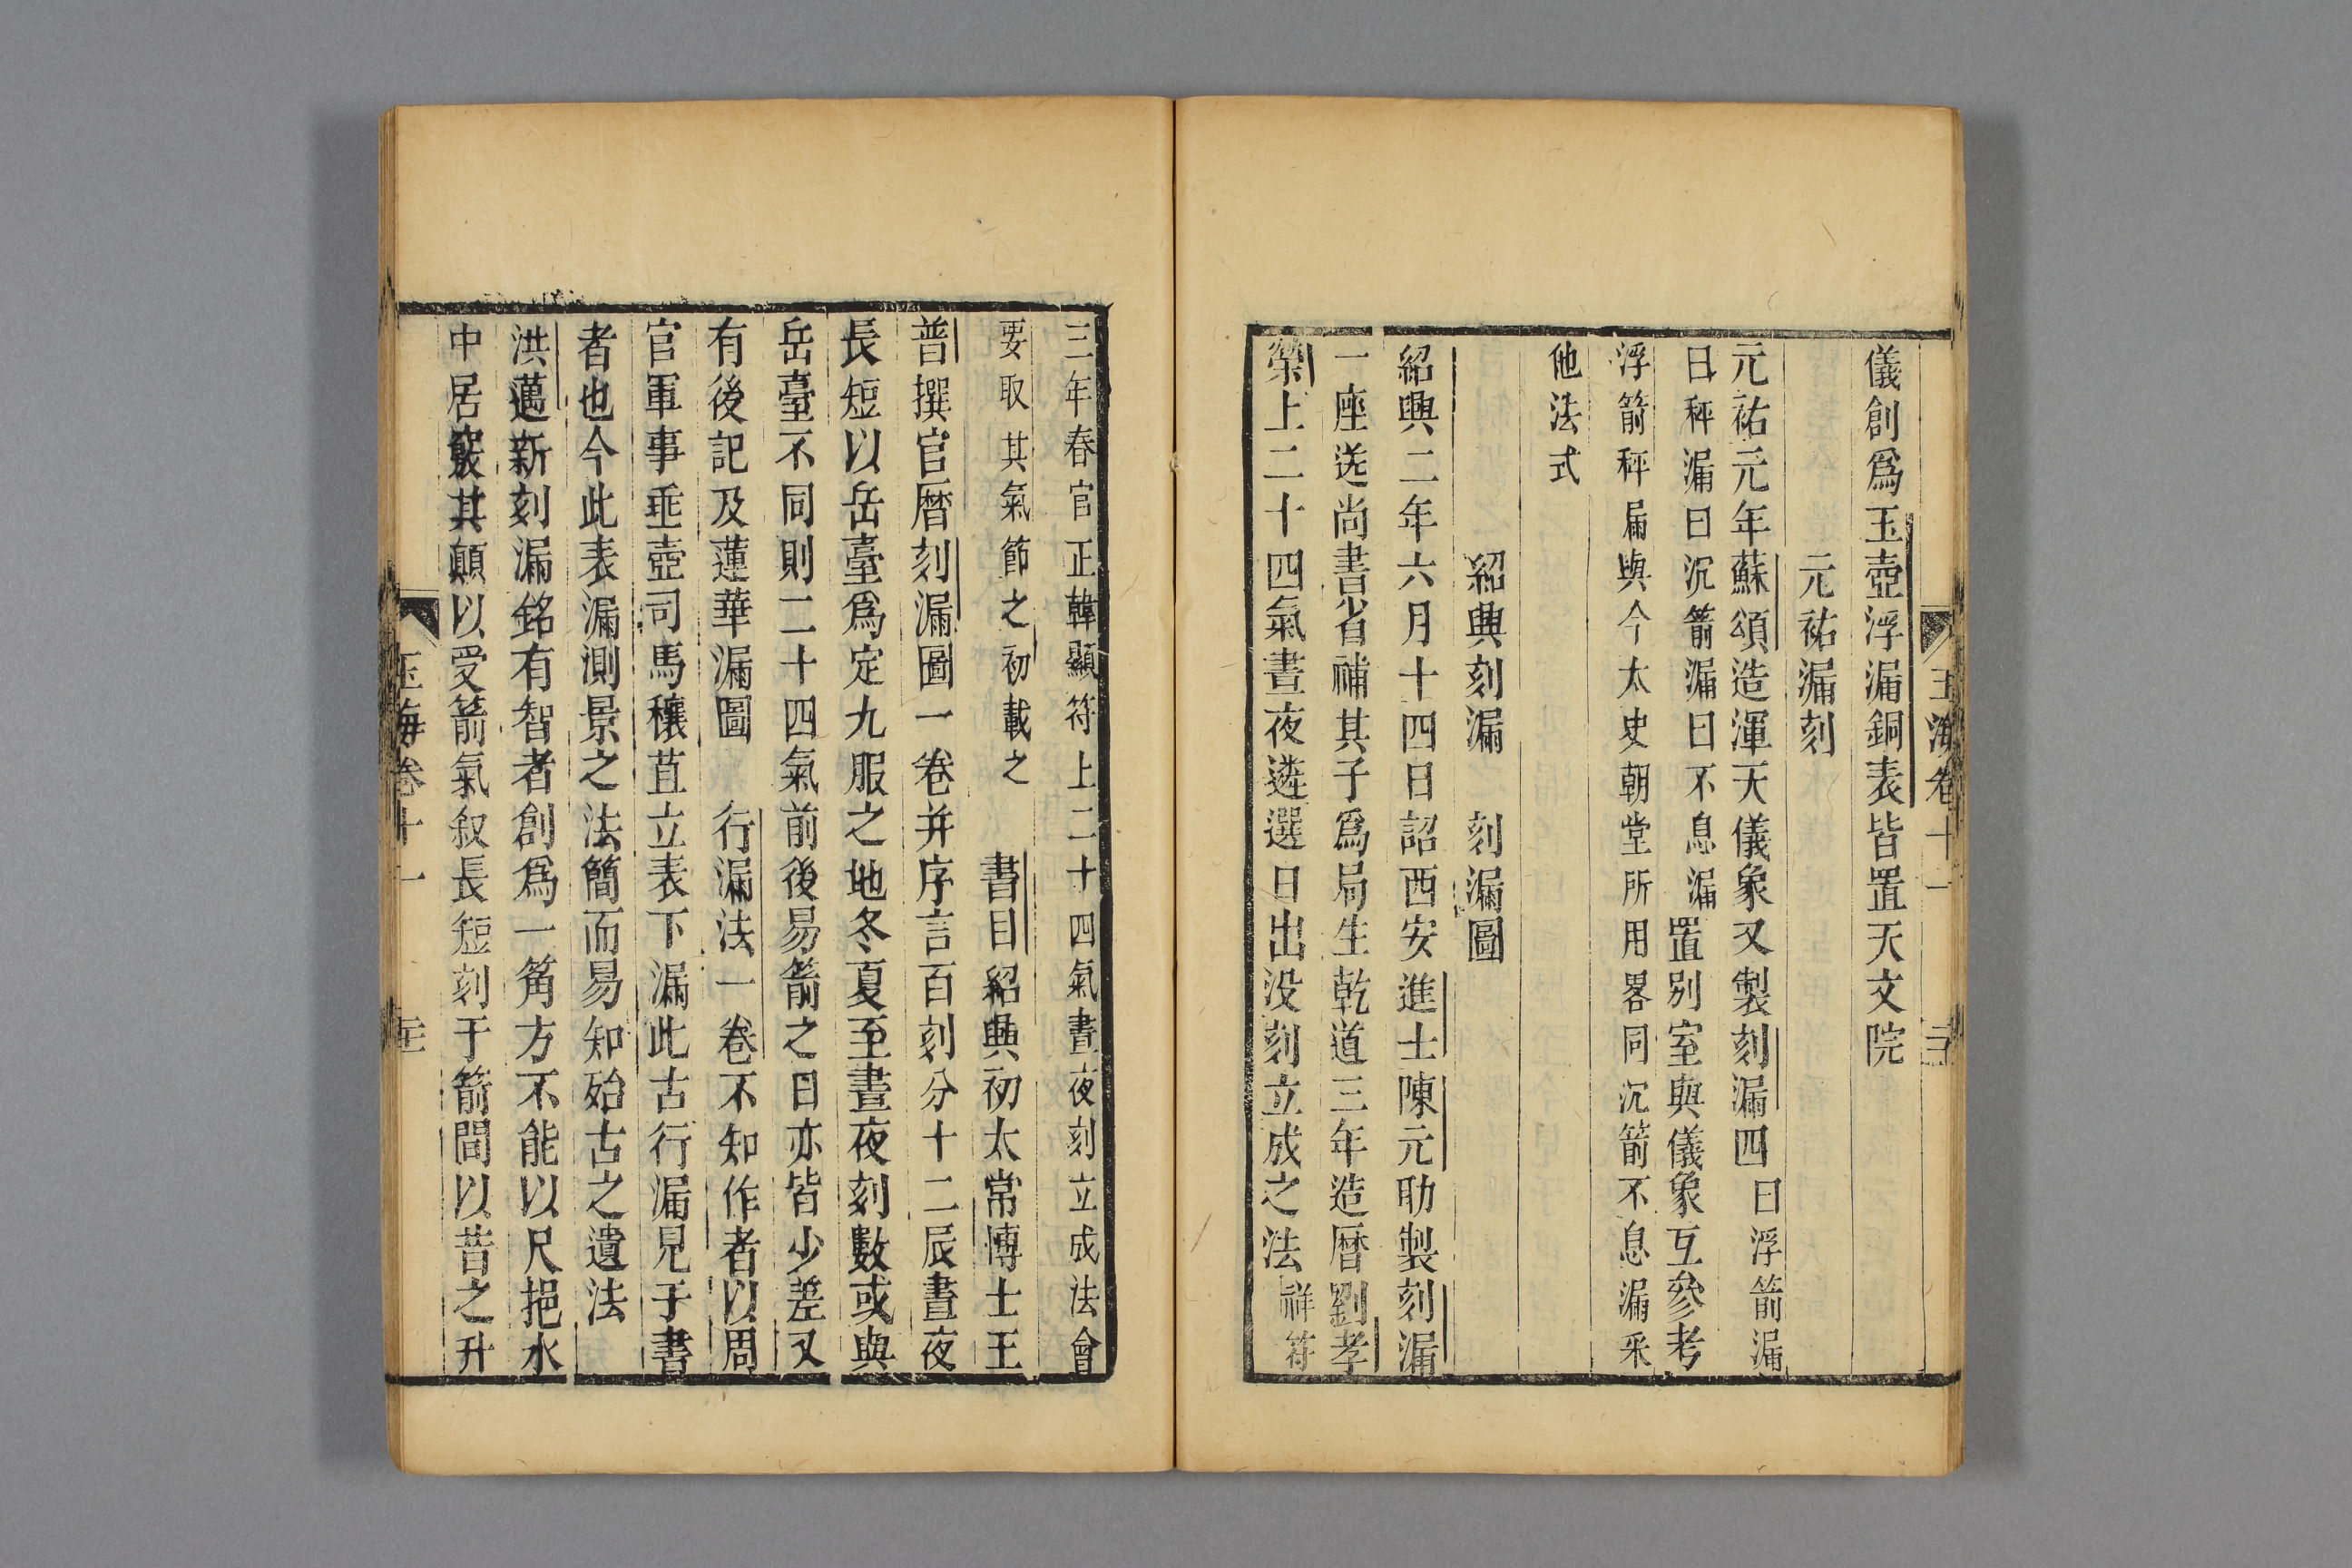 玉海卷十一
儀創爲玉壺浮漏銅表皆置天文院
元祐漏刻
元祐元年蘇頌造渾天儀象又製刻漏四曰浮箭漏
曰秤漏曰沉箭漏曰不息漏置別室與儀象互參考
浮箭秤扁與今太史朝堂所用畧同沉箭不息漏采
他法式
紹興刻漏 刻漏圖
紹興二年六月十四日詔西安進士陳元助製刻漏
一座送尚書省補其子爲局生乾道三年造曆劉孝
榮上二十四氣晝夜遴選日出没刻立成之法祥符
三年春官正韓顯符上二十四氣晝夜刻立成法會
要取其氣節之初載之 書目紹興初太常博士王
普撰官曆刻漏圖一卷并序言百刻分十二辰晝夜
長短以岳臺爲定九服之地冬夏至晝夜刻數或與
岳臺不同則二十四氣前後易箭之日亦皆少差又
有後記及蓮華漏圖 行漏法一卷不知作者以周
官軍事垂壺司馬穰苴立表下漏此古行漏見于書
者也今此表漏測景之法簡而易知殆古之遺法
洪邁新刻漏銘有智者創爲一筩方不能以尺挹水
中居竅其顛以受箭氣叙長短刻于箭間以昔之升
玉海卷十一